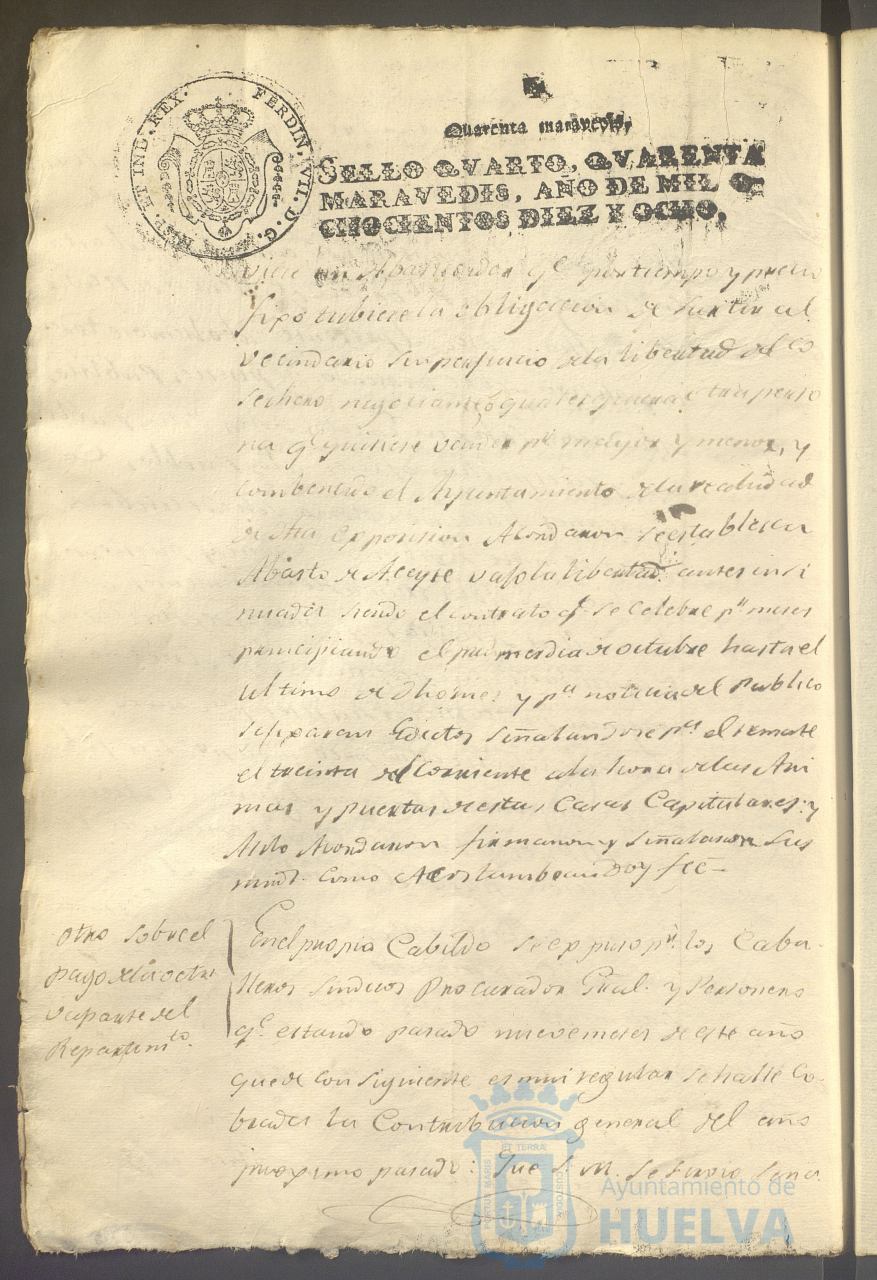 HISP. ET IND. REX. FERDIN. VII. D. G.
Quarenta maravedis,
SELLO QVARTO, QVARENTA
MARAVEDIS, AÑO DE MIL O-
CHOCIENTOS DIEZ Y OCHO.
un Abastecedor qe. por tiempo y precio
fixo tubiere la obligacion de surtir al
vecindario sin perjuicio de la libertad del co
sechero negociante o qualesquiera otra perso
na qe. quisiere vender pr. mayor y menor, y
combencido el Ayuntamiento de la realidad
de dha exposicion Acordaron se establesca
Abasto de Aceyte vajo la libertad antes insi
nuada siendo el contrato qe. se celebre pr. meses
principiando el primer dia de octubre hasta el
ultimo de y pa. noticia del Publico
se fixaran Edictos señalandose pa. el remate
el treinta del Corriente a la hora de las Ani
mas y puertas de estas Casas Capitulares: y
Asi lo Acordaron firmaron y señalaron Sus
mrds. como Acostumbran Doy fee =
Otro sobre el
pago de la octa
va parte del
Repartimto.
En el propio Cabildo se expuso pr. los Caba-
lleros Sindicos Procurador Gral. y Personero
qe. estando pasado nueve meses de este año
que de con siguiente es mui regular se halle Co-
brada la Contribucion general del año
proximo pasado: Que S. M. se sirvio
PORTUS MARIS ET TERRAE CUSTODIA
Ayuntamiento de
HUELVA